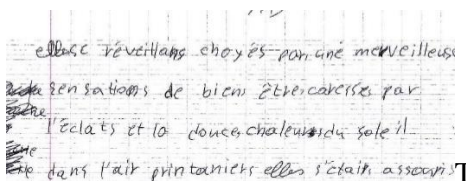 elle se réveillans choyés par une merveilleuse
sensations de biens êtres caresses par
l'éclats et la douces chaleurs du soleil
dans l'air printaniers elles s'était assouris
T